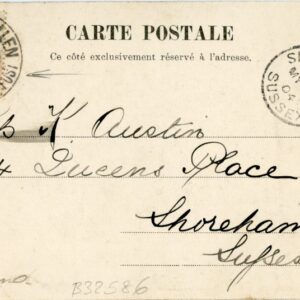 CARTE POSTALE
Ce côté exclusivement réservé à l'adresse.
LEN
SUSSEX
04
K Austin
Lucens Place
Shoreham
Sussex
B32586